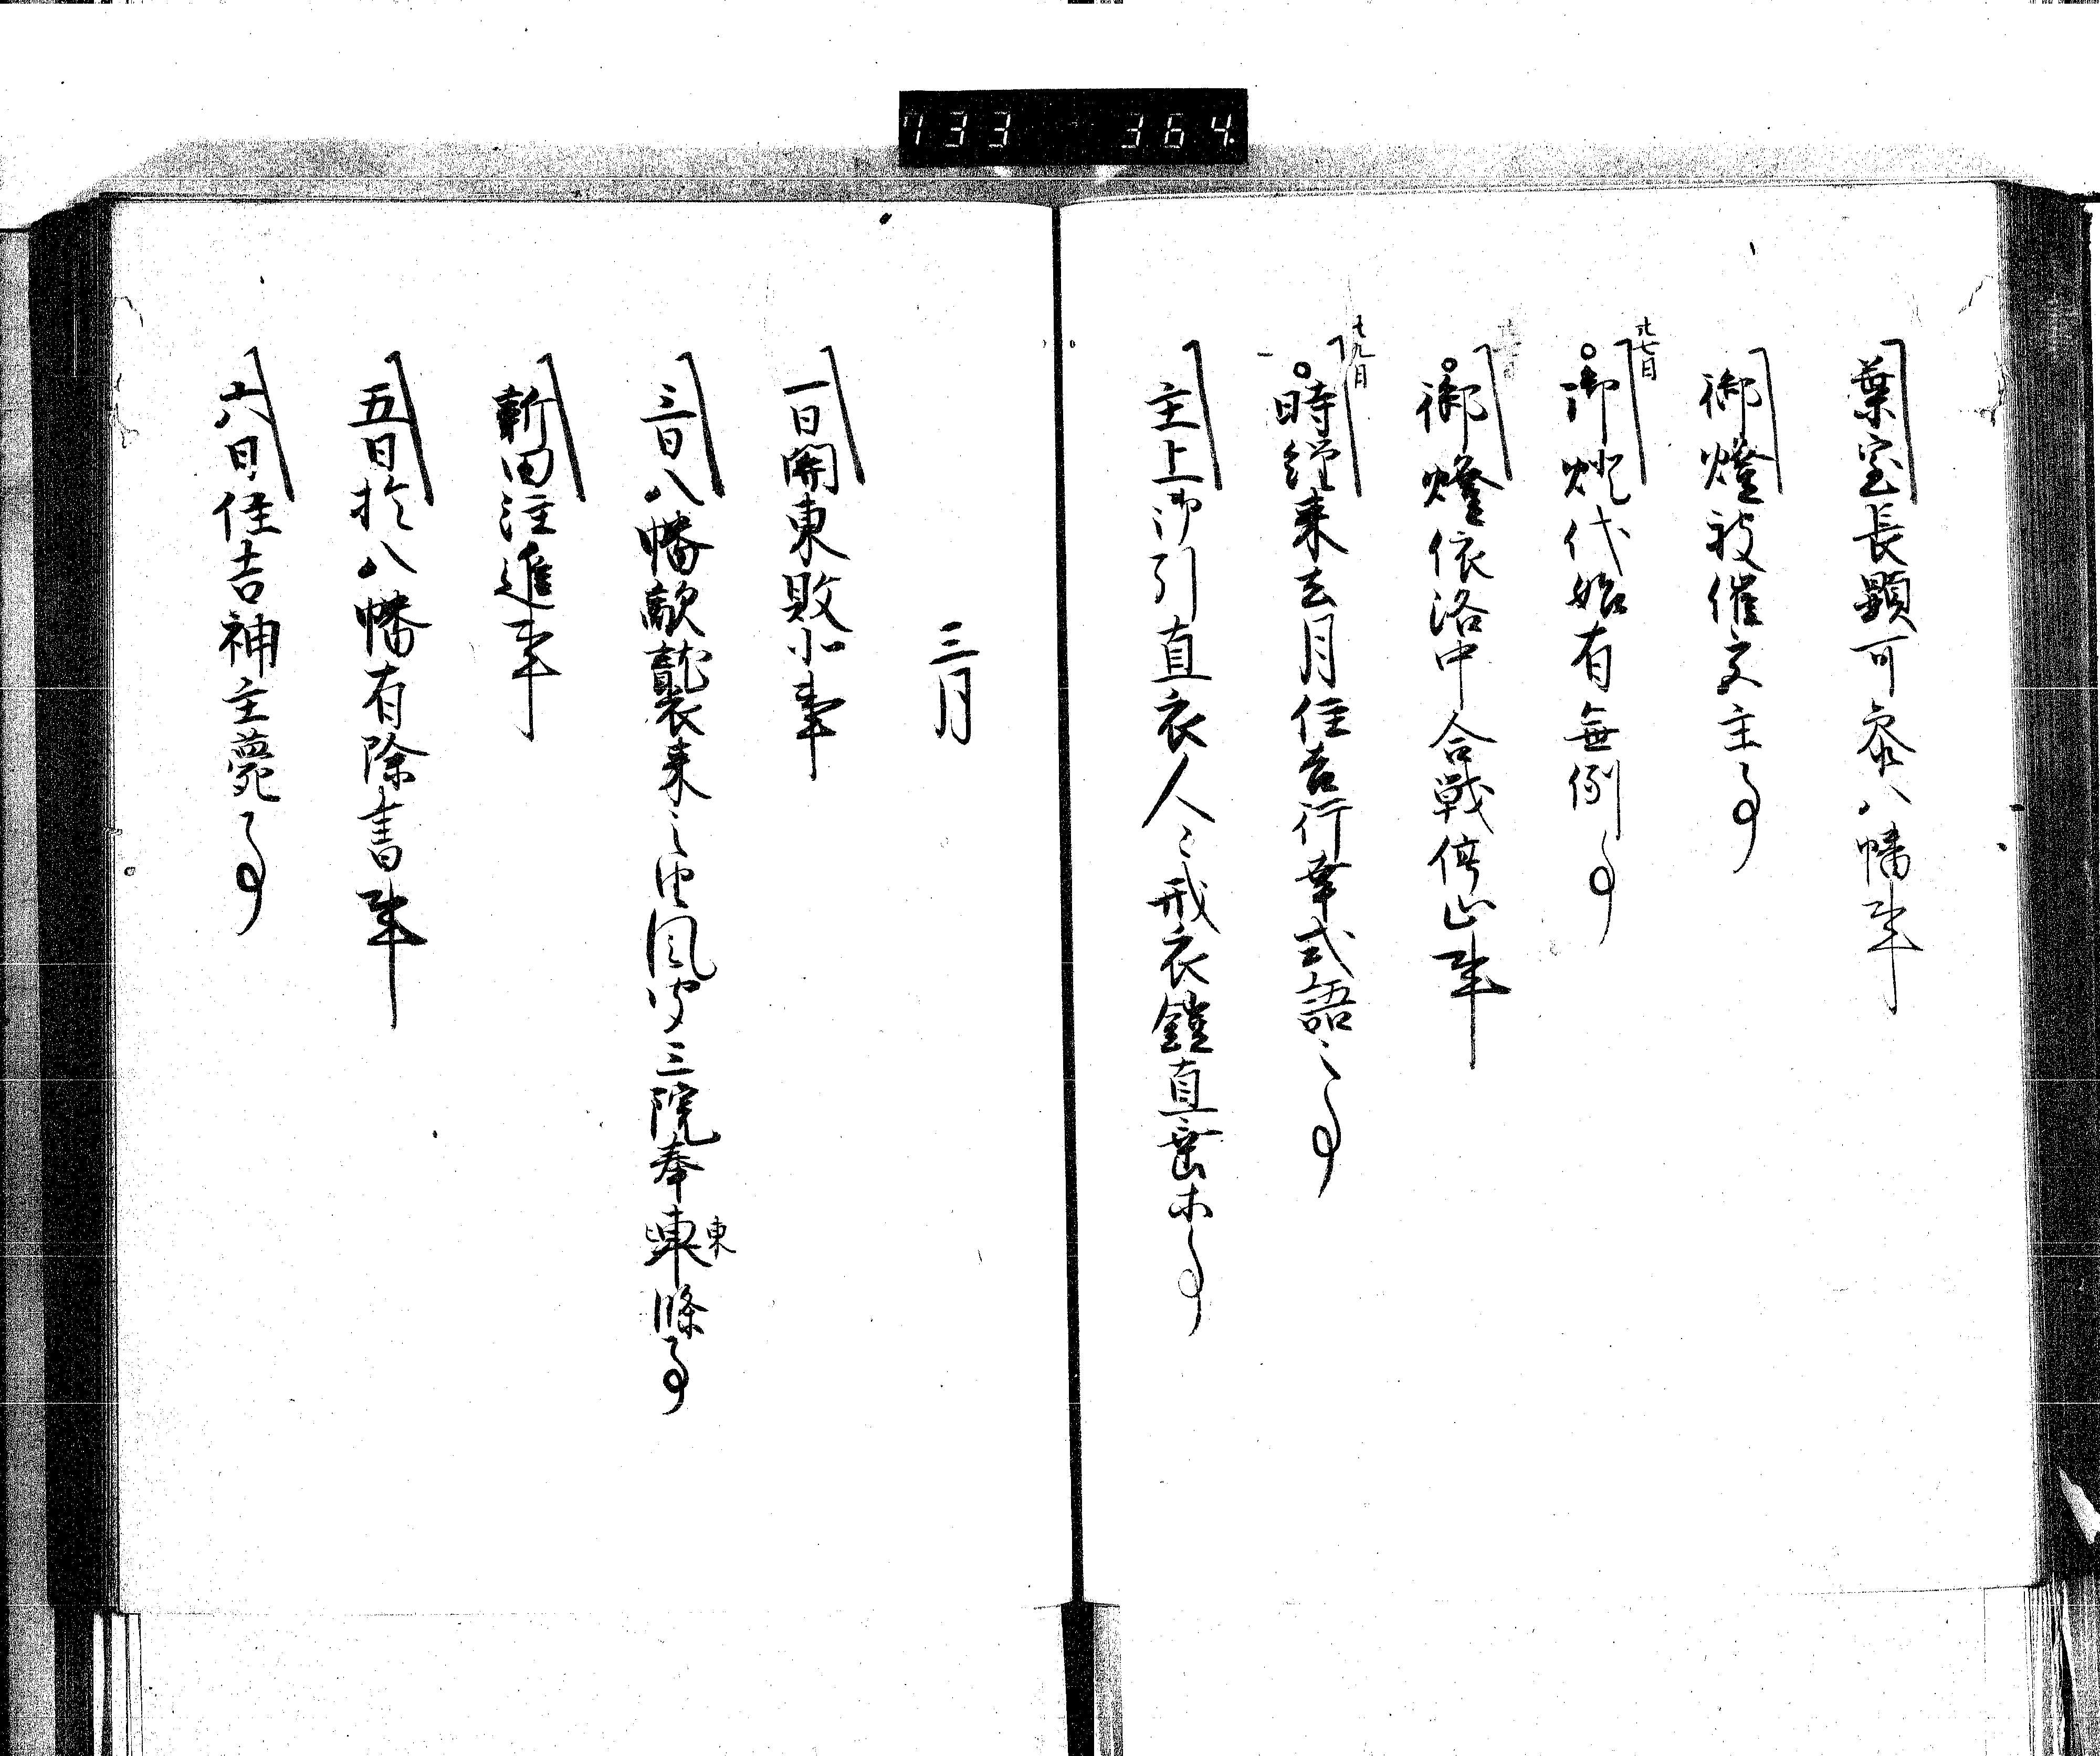 733 364
葉室長顕可参八幡事
御燈被催文主事
廿七日
御燈代始有無例事
御燈依洛中合戦停止事
廿九日
時経来去月住吉行幸式語之事
主上御引直衣人々戎衣鎧直垂木事
三月
一日関東敗北事
三日八幡敵襲来之由風聞三院奉東條事
東
新田注進事
五日於八幡有除書事
六日住吉神主薨事